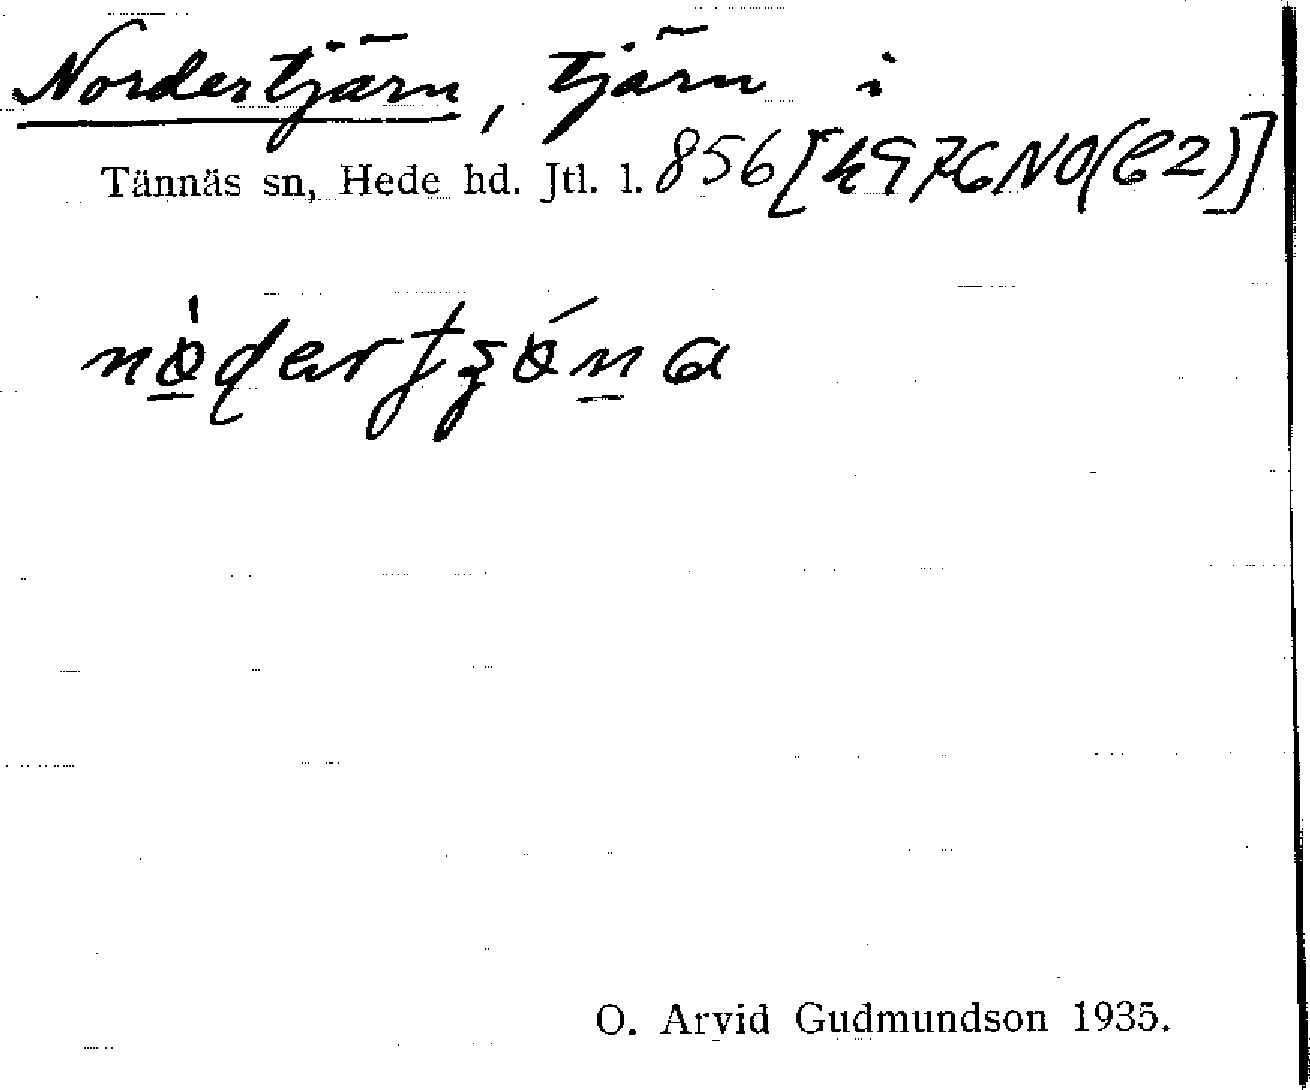 Nordertjärn, tjärn i
Tännäs sn, Hede hd. Jtl. l. 856 [h976NO(C2)]
O. Arvid Gudmundson 1935.